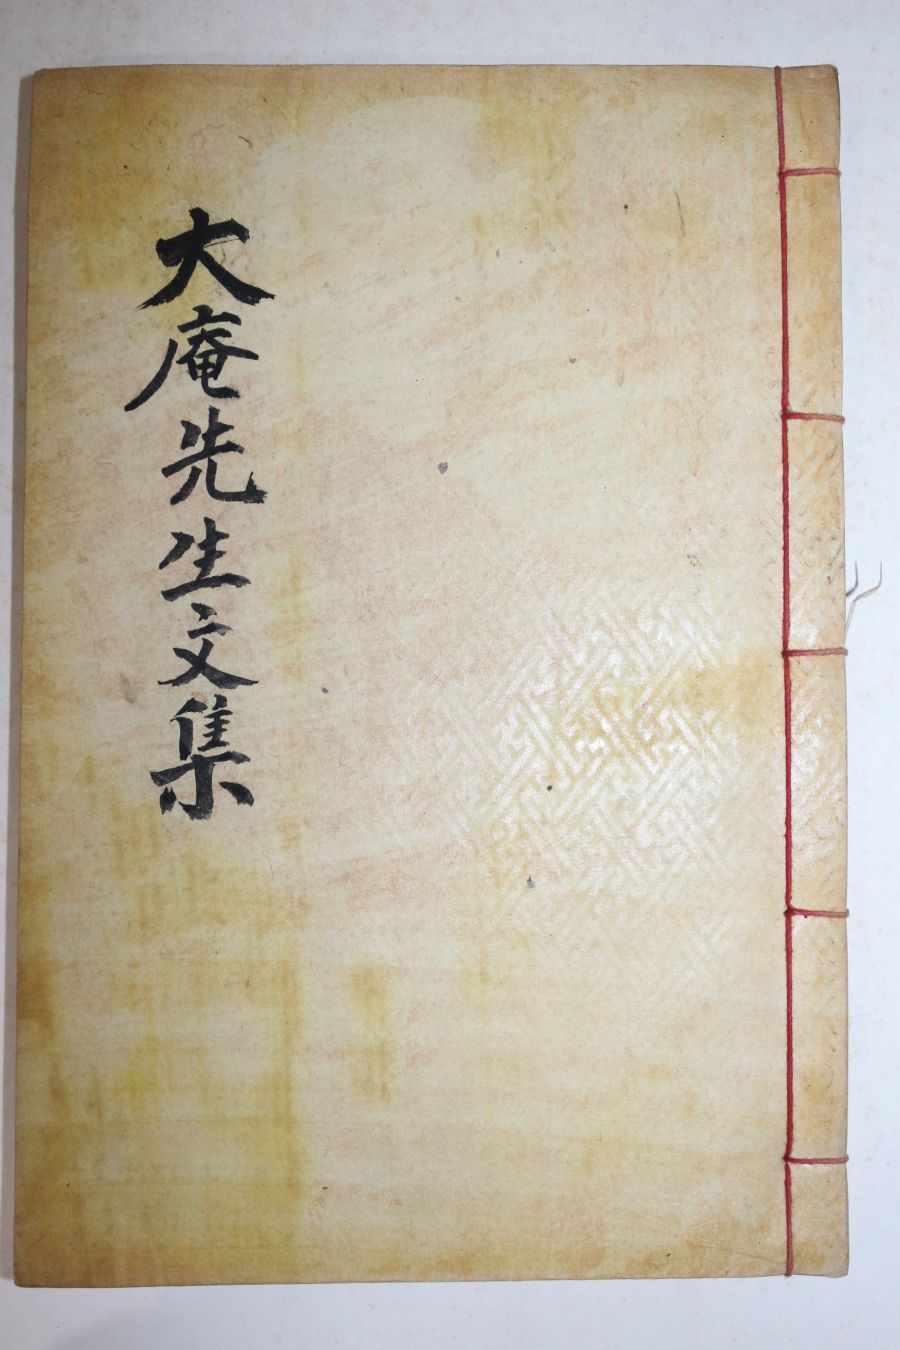 大庵先生文集